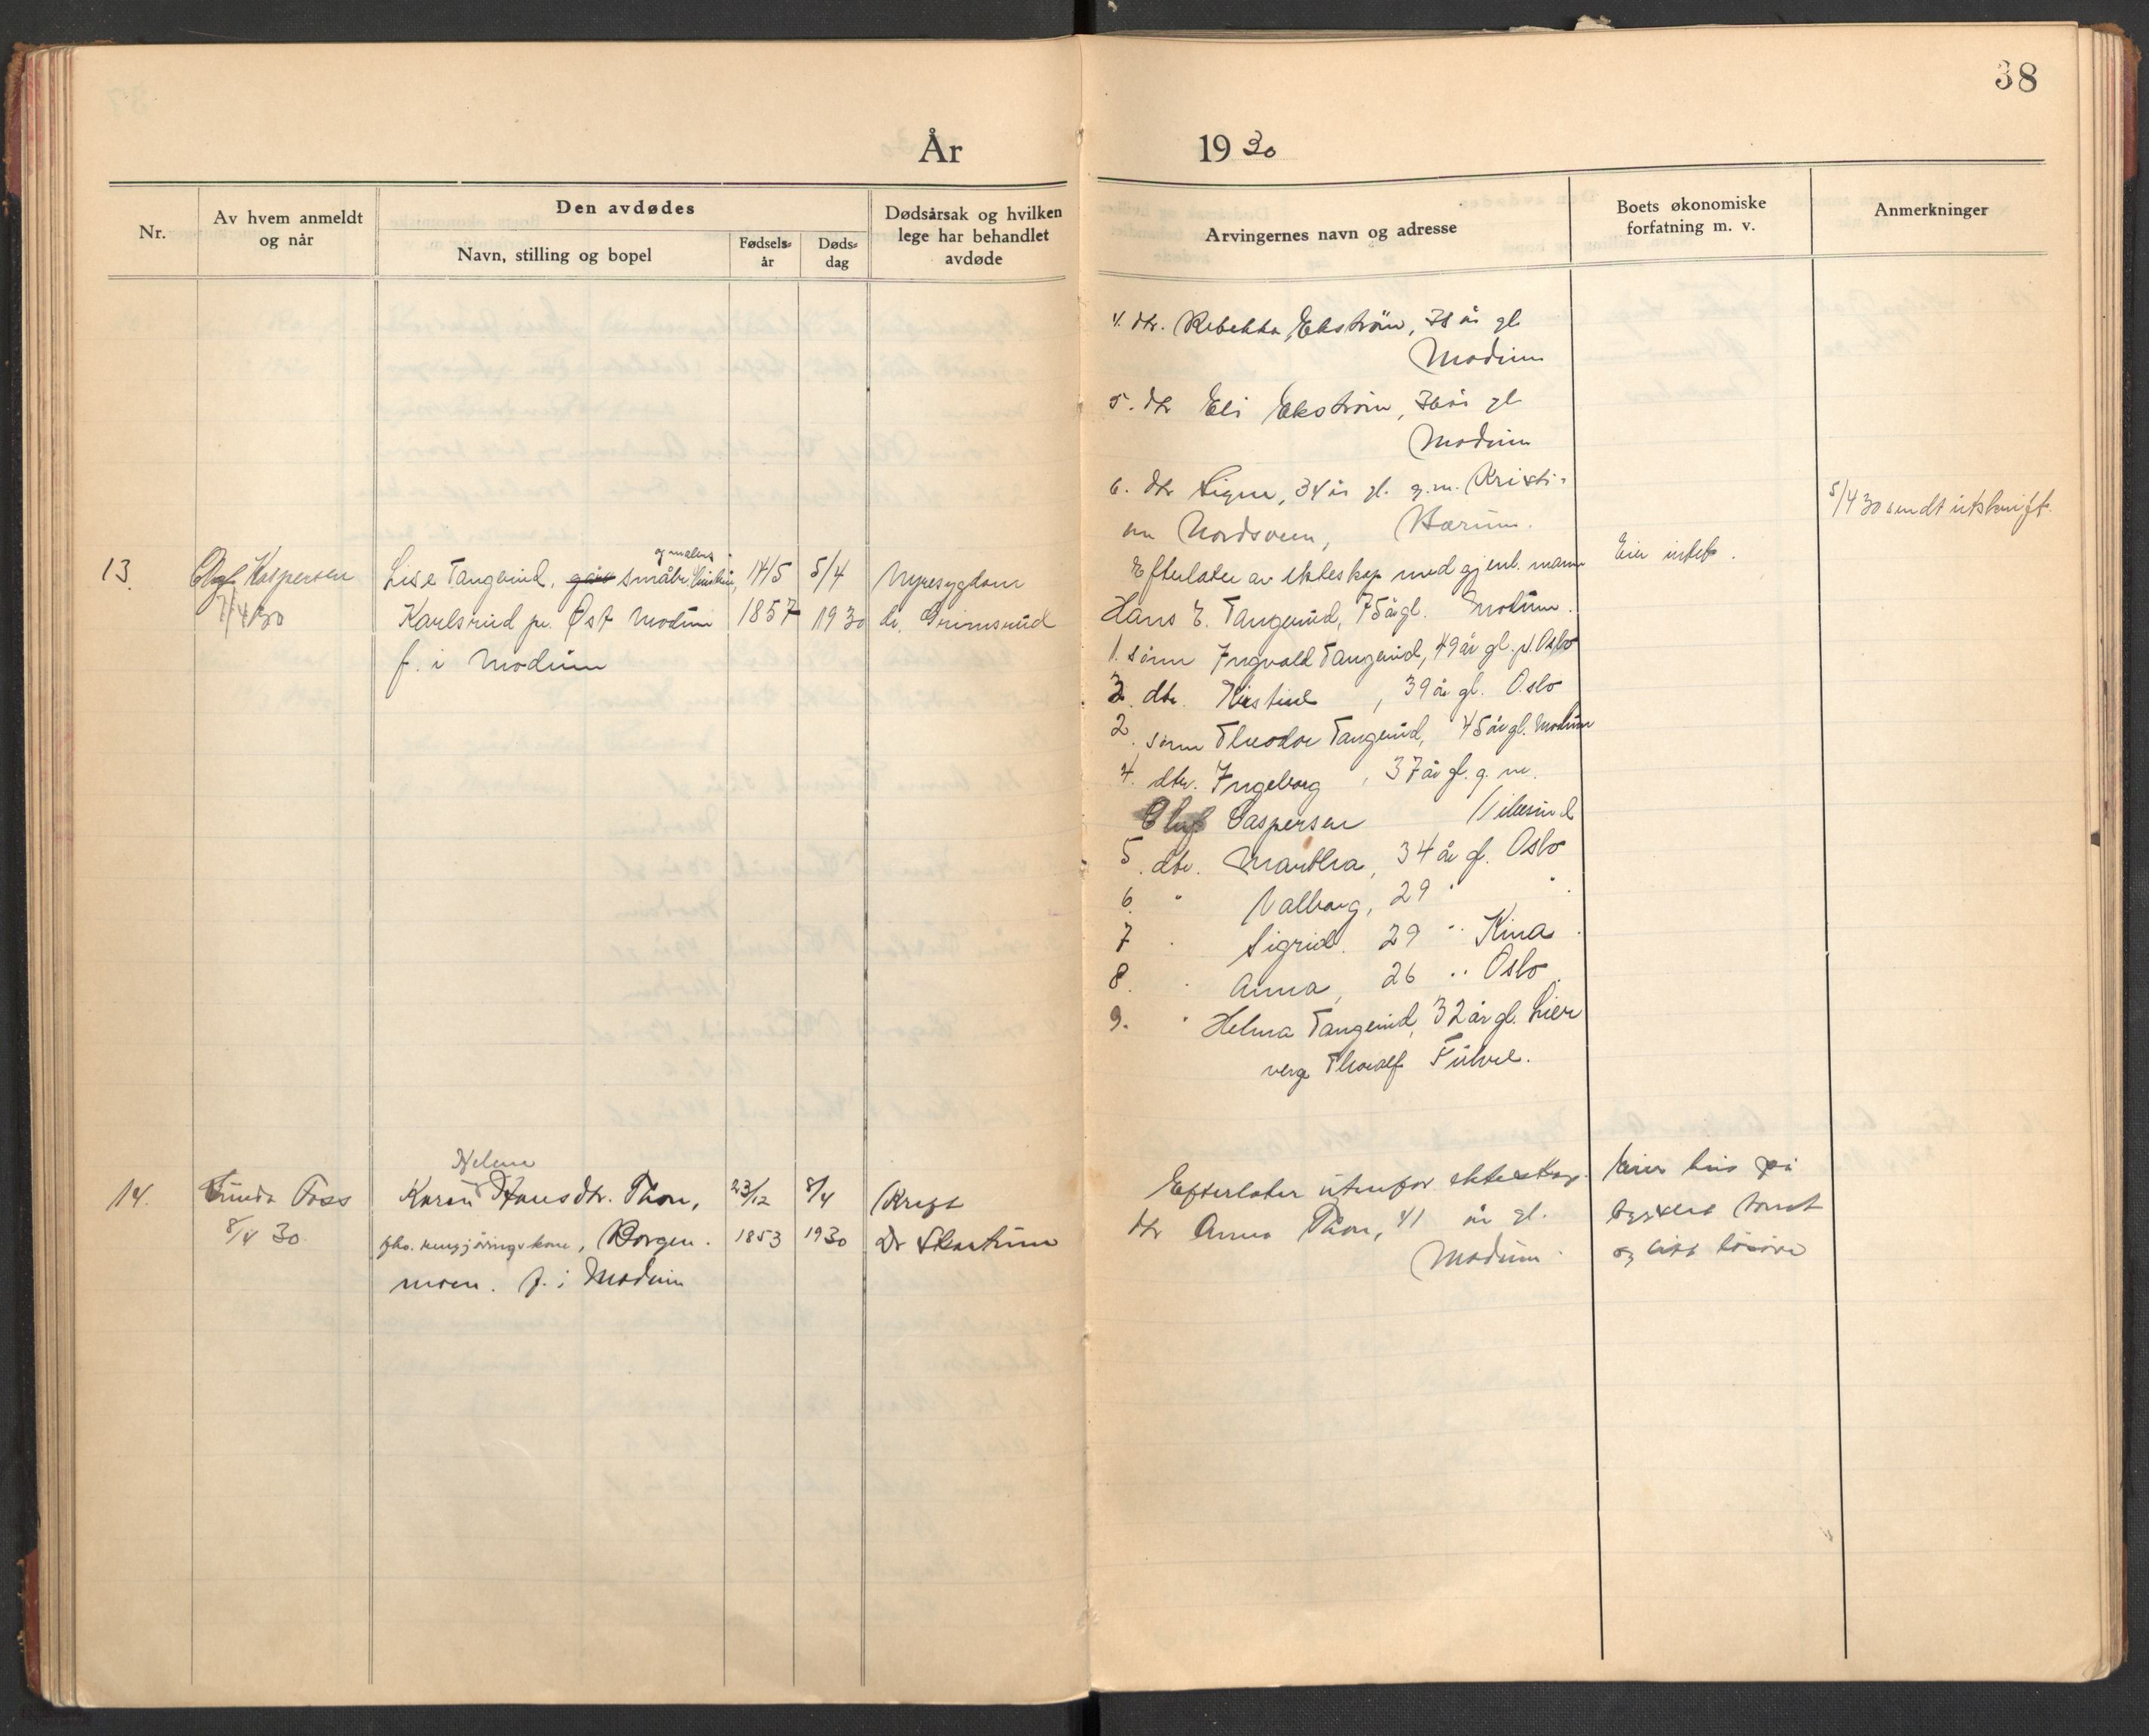 38
År 1930
Nr.
Av hvem anmeldt
og når
Den avdødes
Navn, stilling og bopel
Fødsels-
år
Døds-
dag
Dødsårsak og hvilken
lege har behandlet
avdøde
Arvingernes navn og adresse
Boets økonomiske
forfatning m. v.
Anmerkninger
4. dtr. Rebekka Ekström, 38 år gl
Modum
5. dtr Eli Ekström, 36 år gl
Modum
6. dtr Signe, 34 år gl. g.m. Kristi-
an Nordsveen, Bærum.
5/4 30 sendt utskrift.
13.
Olaf Kaspersen
7/4 30
og malers
Lise Tangerud, småbr.
Karlsrud pr. Øst Modum
f. i Modum
14/5
1857
5/4
1930
Nyresygdom
dr. Grimsrud
Efterlater av ekteskap med gjenl. mann
Hans E. Tangerud, 75 år gl. Modum.
1. sønn Ingvald Tangerud, 49 år gl. Oslo
3. dtr. Kirstine, 39 år gl. Oslo
2. sønn Theodor Tangerud, 45 år gl. Modum
4. dtr. Ingeborg, 37 år gl. g. m.
Olaf Caspersen Vikersund
5. dtr. Martha, 34 år gl. Oslo
6. " Valborg, 29 " "
7 " Sigrid. 29 " Kina
8. " Anna, 26 " Oslo
9. " Helma Tangerud, 32 år gl. Lier
verge Thoralf
Eier intet.
14.
Foss
8/4 30
Helene
Karen Hansdtr. Thon,
rengjøringskone, Borgen.
moen. f. i Modum
23/12
1853
8/4
1930
Kreft
Dr Skartum
Efterlater utenfor ekteskap
dtr Anna Thon, 41 år gl.
Modum.
Eier hus på
bygslet tomt
og litt løsøre